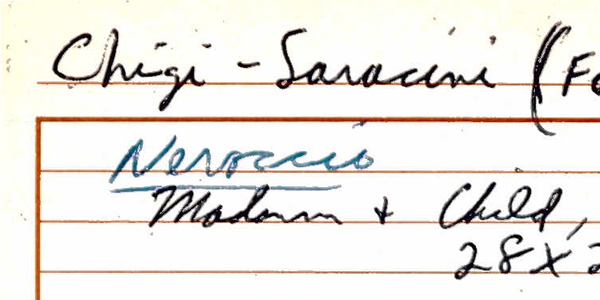 Chigi - Saracini (Fo
Neroccio
Madonna + Child,
28 x 2